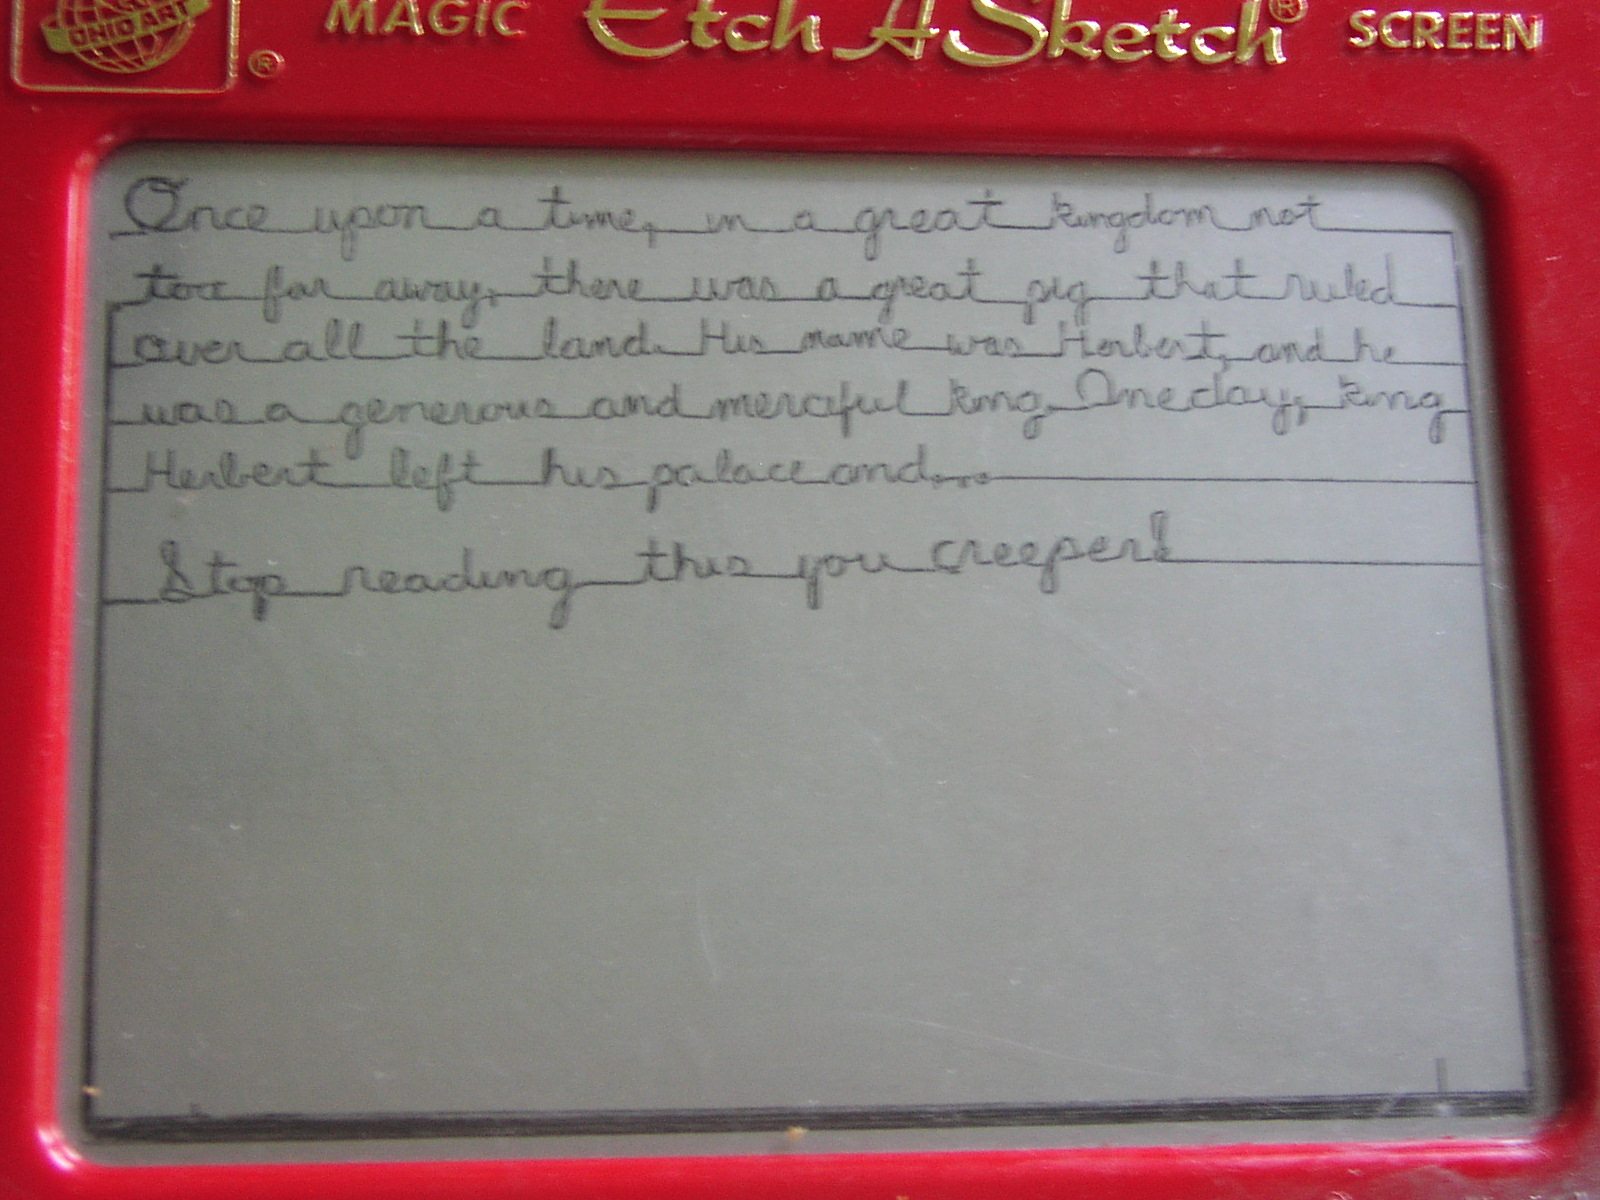 OHIO ART ®
MAGIC Etch A Sketch® SCREEN
Once upon a time, in a great kingdom not
too far away, there was a great pig that ruled
over all the land. His name was Herbert, and he
was a generous and merciful king. One day, king
Herbert left his palace and...
Stop reading this you creeper!